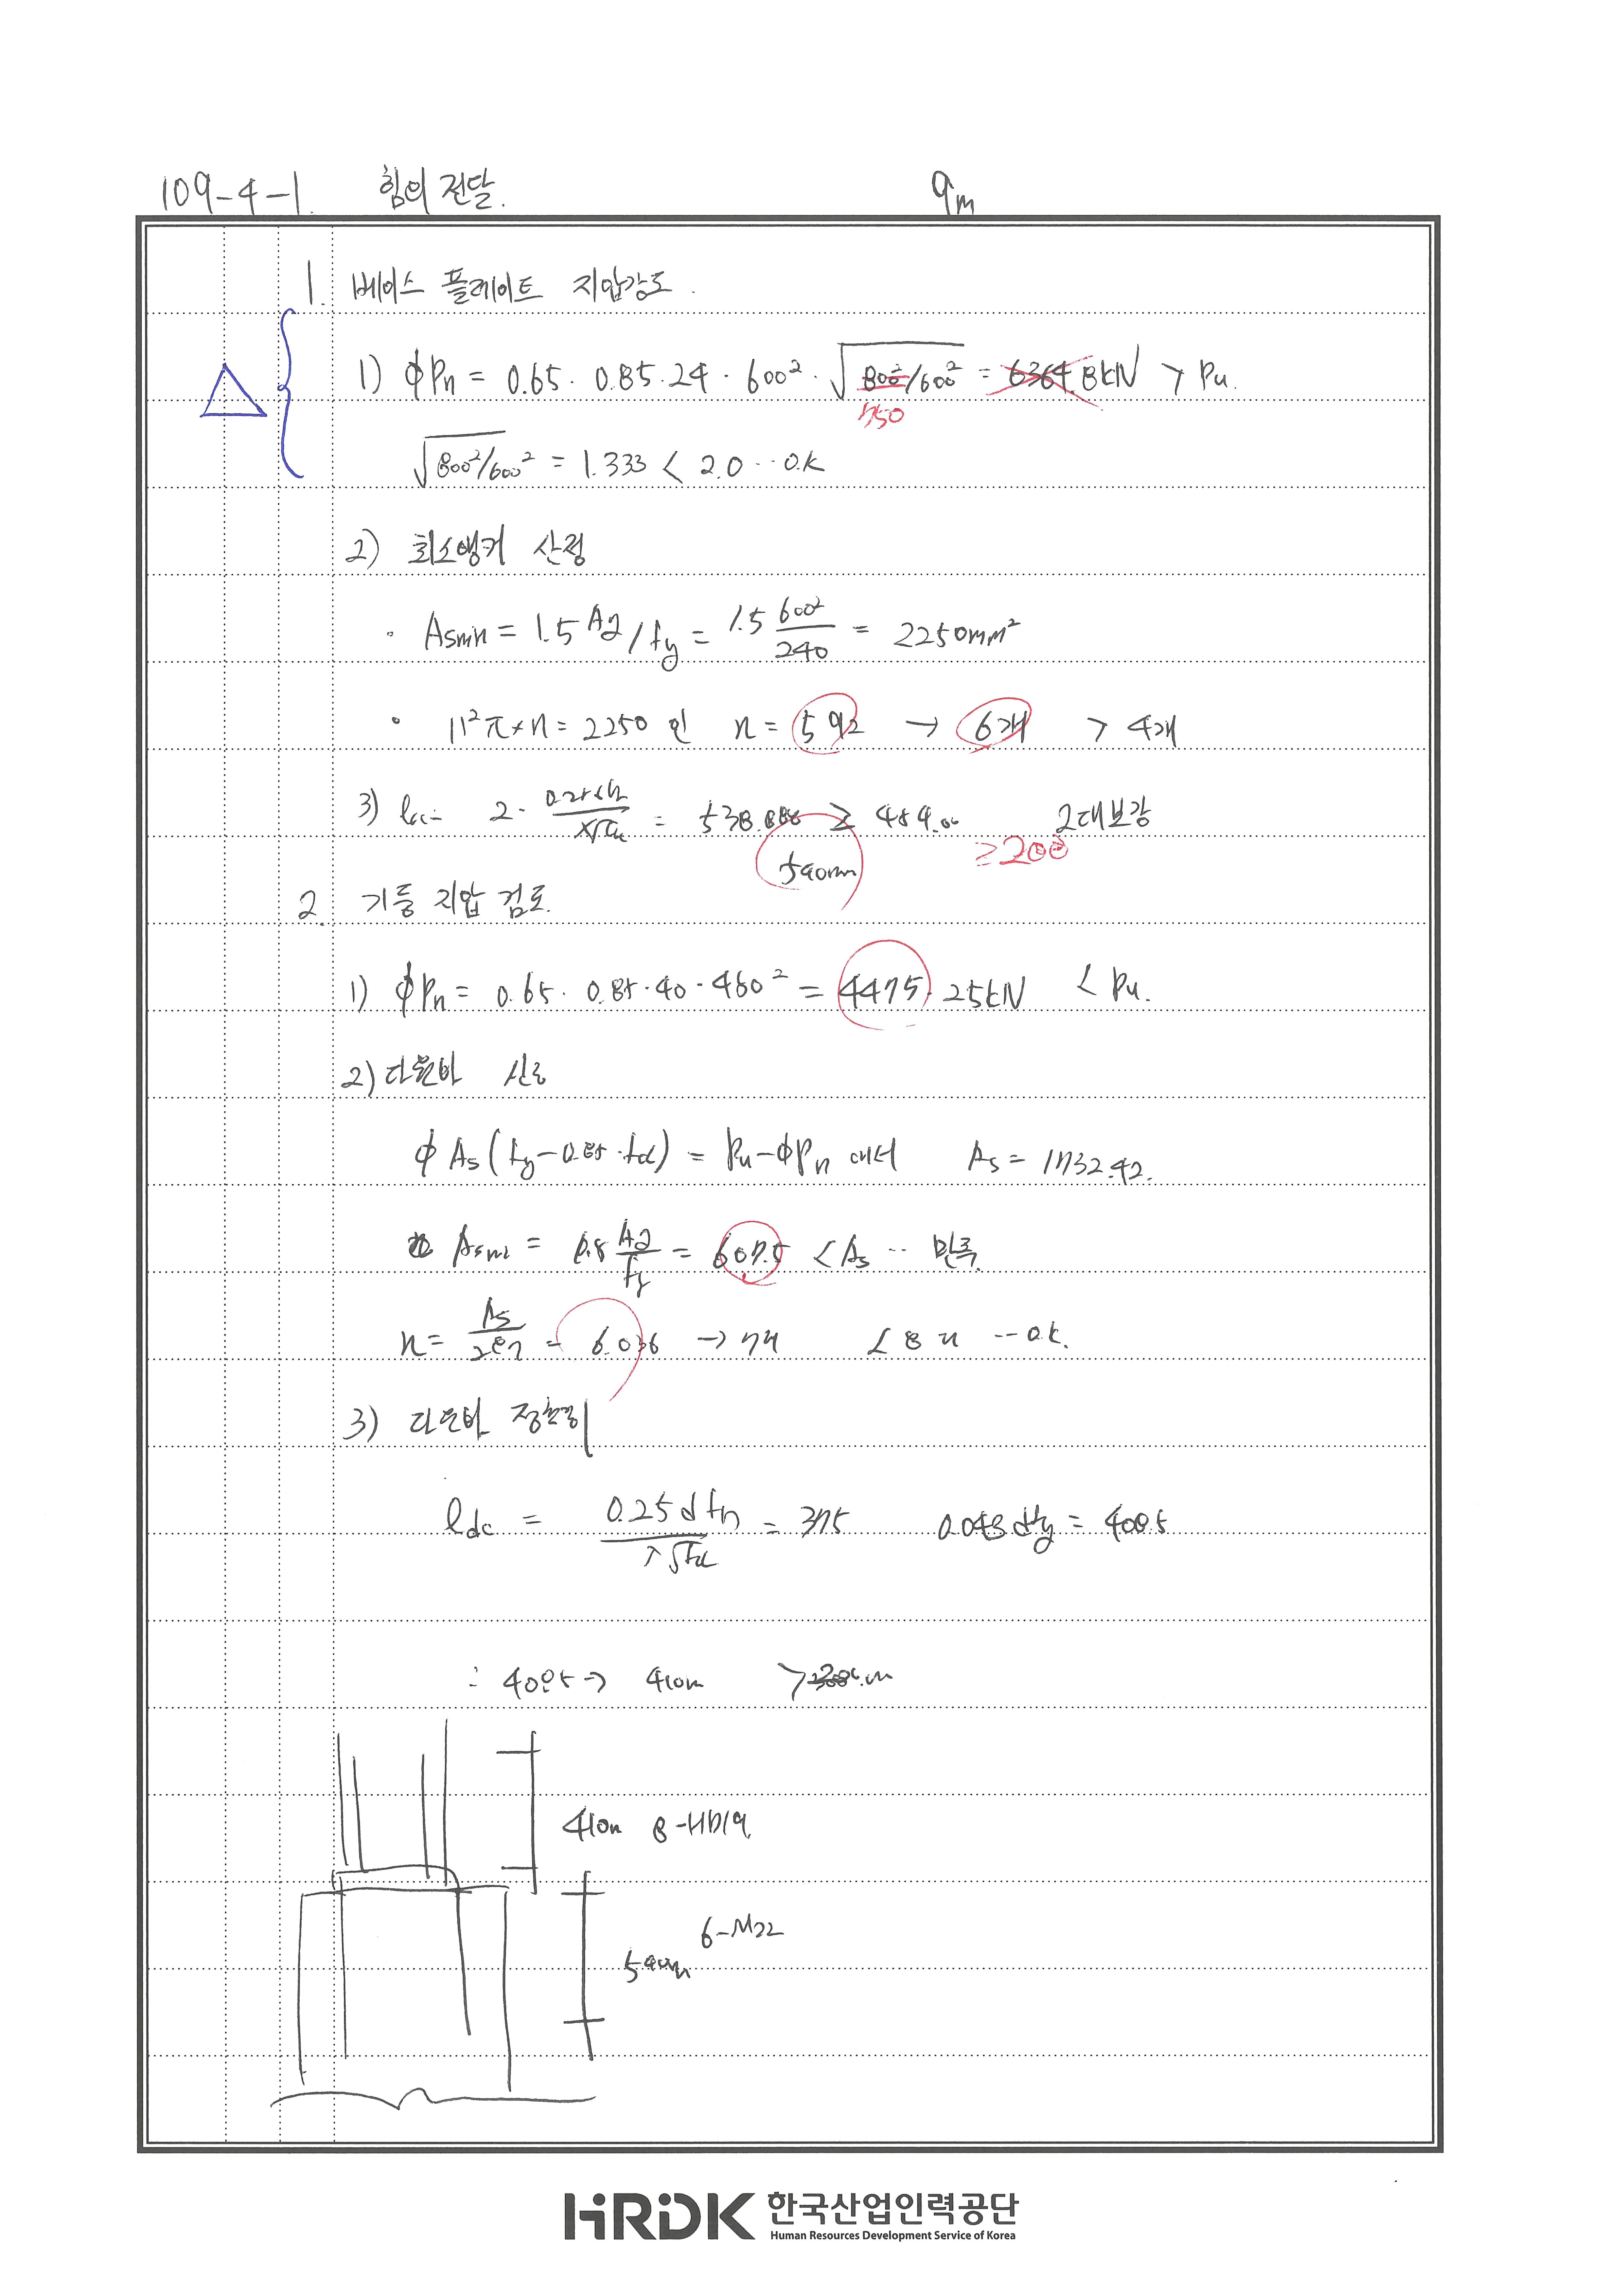 109-4-1. 힘의 전달. 9m
1. 베이스 플레이트 지압강도.
1) ϕPn = 0.65 · 0.85 · 24 · 600² · √800²/600² = 6364.8kN > Pu.
750
√800²/600² = 1.333 < 2.0 ··· O.K
2) 최소앵커 산정
· Asmin = 1.5 Ag/fy = 1.5 600²/240 = 2250mm²
· 11²π×n = 2250 인 n = 5.92 → 6개 > 4개
3) 2 · = 538.888 ≥ 484.00 2대보강
≥200
540mm
2. 기둥 지압 검토
1) ϕPn = 0.65 · 0.85 · 40 · 450² = 4475.25kN < Pu.
2) 다우얼바 산정
ϕ As(fy-0.85·fck) = Pu-ϕPn 에서 As = 1732.42.
Asmin = Ag/fy = 607.5 < As ·· 만족
n = As/287 = 6.036 → 7개 < 8개 ··· O.K.
3) 다우얼바 정착길이
ldc = 0.25 d fy/λ√fck = 375 0.043 d fy = 408.5
∴ 408.5 → 410m
410m 8-HD19
6-M22
540m
HRDK 한국산업인력공단
Human Resources Development Service of Korea